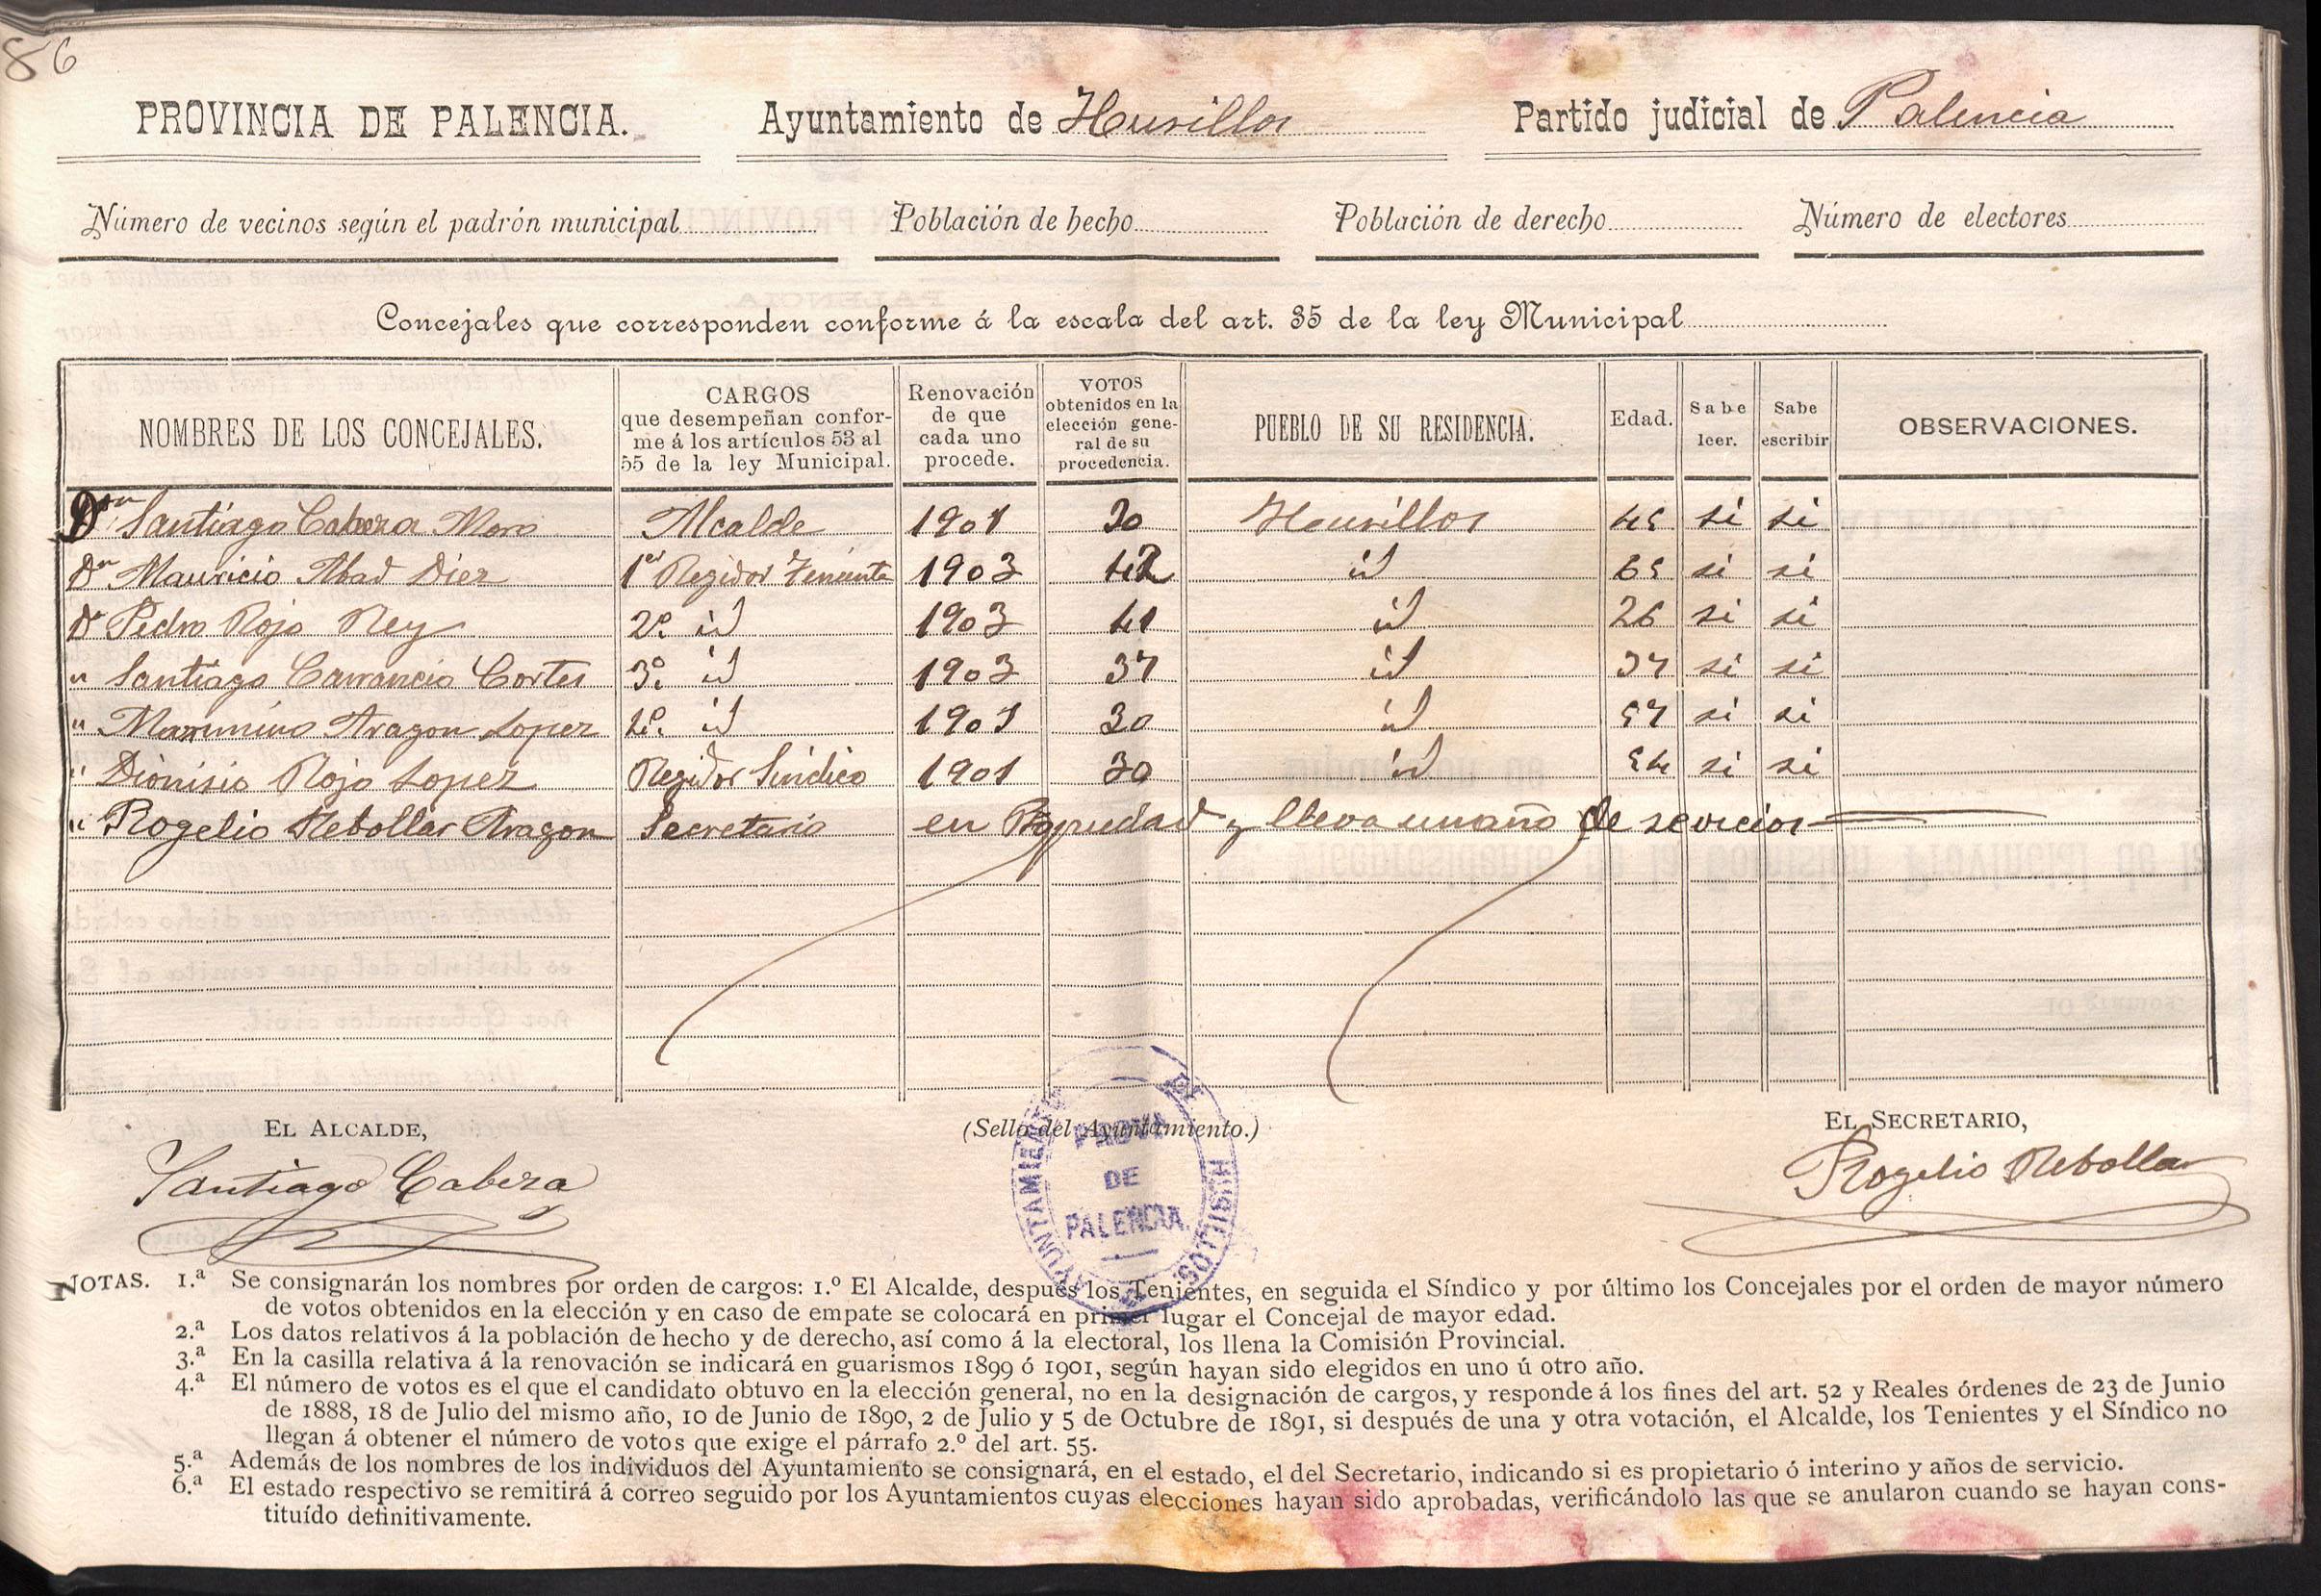 86
PROVINCIA DE PALENCIA. Ayuntamiento de Husillos Partido judicial de Palencia
Número de vecinos según el padrón municipal Población de hecho Población de derecho Número de electores
Concejales que corresponden conforme á la escala del art. 35 de la ley Municipal
NOMBRES DE LOS CONCEJALES. CARGOS que desempeñan conforme á los artículos 53 al 55 de la ley Municipal. Renovación de que cada uno procede. VOTOS obtenidos en la elección general de su procedencia. PUEBLO DE SU RESIDENCIA. Edad. Sabe leer. Sabe escribir OBSERVACIONES.
Don Santiago Cabeza Moro Alcalde 1901 30 Husillos 45 si si
Dn Mauricio Abad Diez 1er Regidor Teniente 1903 42 id 65 si si
Dn Pedro Rojo Rey 2º id 1903 41 id 26 si si
" Santiago Carrancio Cortes 3º id 1903 37 id 37 si si
" Maximino Aragon Lopez 4º id 1901 30 id 57 si si
" Dionisio Rojo Lopez Regidor Sindico 1901 30 id 54 si si
" Rogelio Rebollar Aragon Secretario en Propiedad y lleva un año de sevicios
EL ALCALDE, (Sello del Ayuntamiento.) EL SECRETARIO,
Santiago Cabeza AYUNTAMIENTO DE HUSILLOS PROVA DE PALENCIA. Rogelio Rebollar
NOTAS. 1.ª Se consignarán los nombres por orden de cargos: 1.º El Alcalde, después los Tenientes, en seguida el Síndico y por último los Concejales por el orden de mayor número
de votos obtenidos en la elección y en caso de empate se colocará en primer lugar el Concejal de mayor edad.
2.ª Los datos relativos á la población de hecho y de derecho, así como á la electoral, los llena la Comisión Provincial.
3.ª En la casilla relativa á la renovación se indicará en guarismos 1899 ó 1901, según hayan sido elegidos en uno ú otro año.
4.ª El número de votos es el que el candidato obtuvo en la elección general, no en la designación de cargos, y responde á los fines del art. 52 y Reales órdenes de 23 de Junio
de 1888, 18 de Julio del mismo año, 10 de Junio de 1890, 2 de Julio y 5 de Octubre de 1891, si después de una y otra votación, el Alcalde, los Tenientes y el Síndico no
llegan á obtener el número de votos que exige el párrafo 2.º del art. 55.
5.ª Además de los nombres de los individuos del Ayuntamiento se consignará, en el estado, el del Secretario, indicando si es propietario ó interino y años de servicio.
6.ª El estado respectivo se remitirá á correo seguido por los Ayuntamientos cuyas elecciones hayan sido aprobadas, verificándolo las que se anularon cuando se hayan cons-
tituído definitivamente.